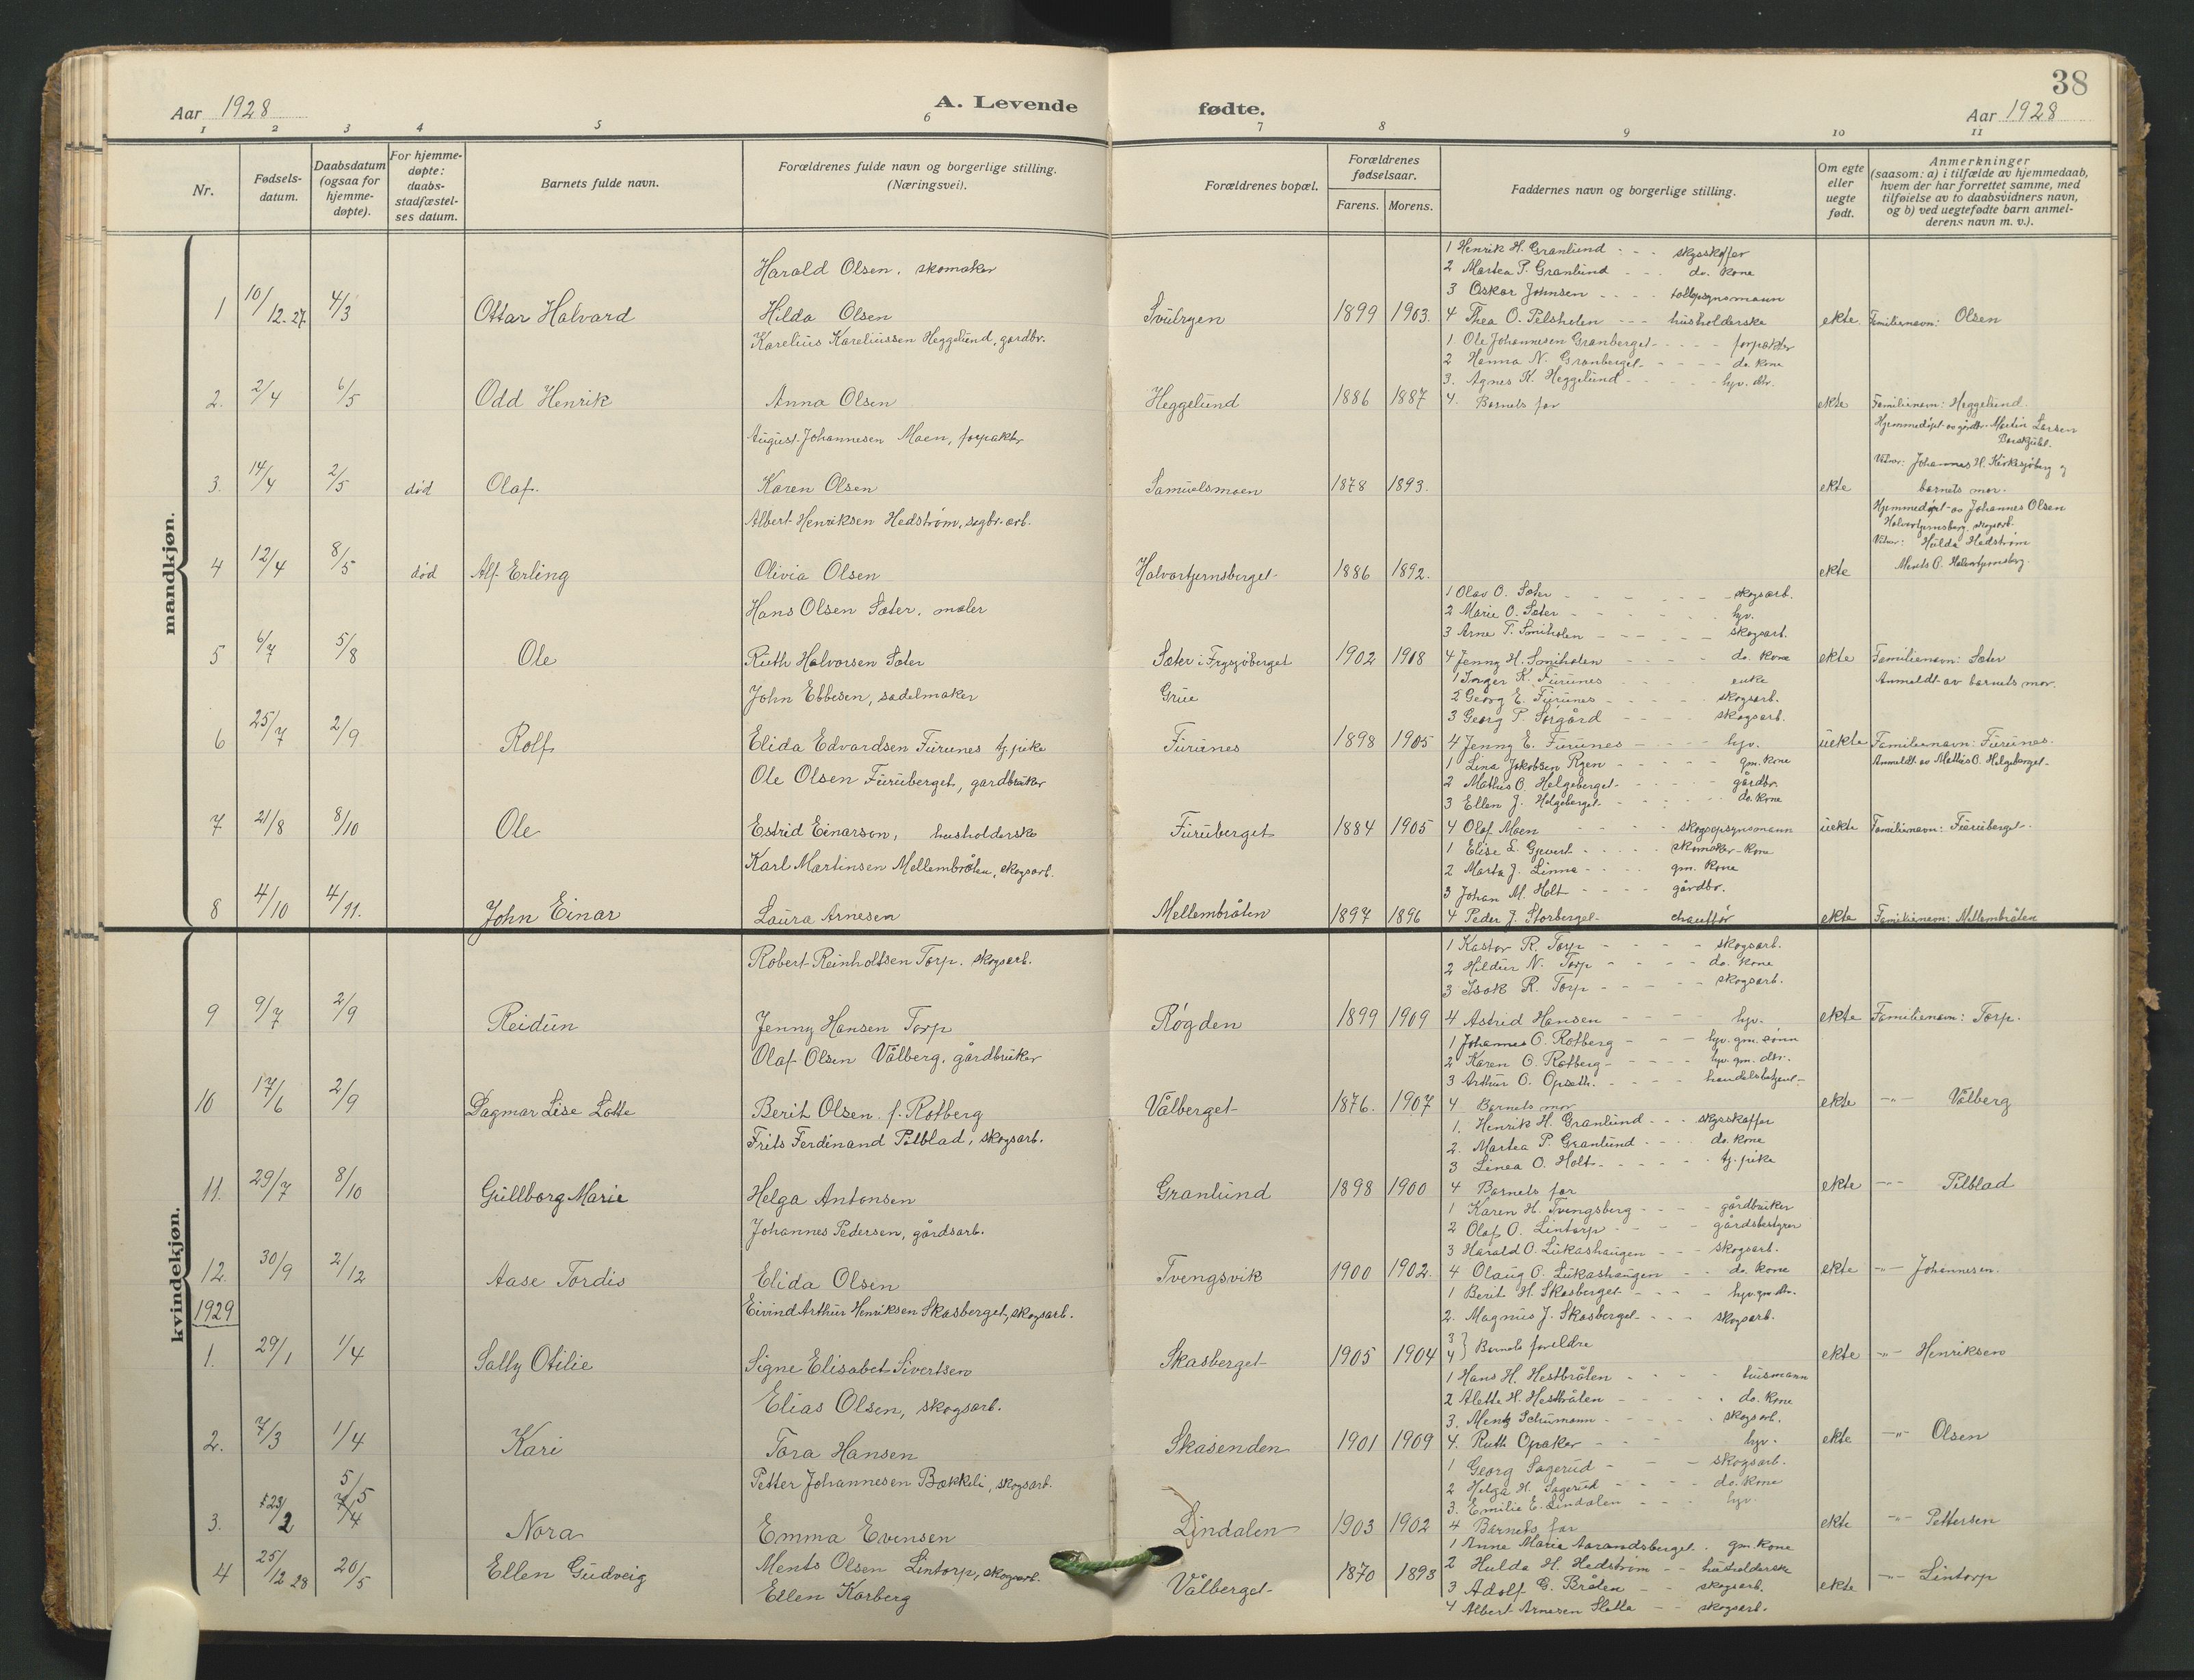 38
Aar 1928
A. Levende
fødte.
Aar 1928
1 2 3 4 5 6 7 8 9 10 11
Nr.
Fødsels-
datum.
Daabsdatum
(ogsaa for
hjemme-
døpte).
For hjemme-
døpte:
daabs-
stadfæstel-
ses datum.
Barnets fulde navn.
Forældrenes fulde navn og borgerlige stilling.
(Næringsvei).
Forældrenes bopæl.
Forældrenes
fødselsaar.
Farens. Morens.
Faddernes navn og borgerlige stilling.
Om egte
eller
uegte
født.
Anmerkninger
(saasom: a) i tilfælde av hjemmedaab,
hvem der har forrettet samme, med
tilføielse av to daabsvidners navn,
og b) ved uegtefødte barn anmel-
derens navn m. v.).
mandkjøn.
Harald Olsen, skomaker
1 Henrik H. Granlund - - skysskaffer
2 Martea P. Granlund - - - do. kone
3 Oskar Johnsen - - - - tollopsynsmann
1 10/12-27 4/3 Ottar Halvard Hilda Olsen 1899 1903. 4 Thea O. Pelsholen - - - husholderske ekte Familienavn: Olsen
Karelius Kareliussen Heggelund, gardbr.
1 Ole Johannesen Granberget - - - - forpakter
2 Hanna N. Granberget - - - - do. kone
3. Agnes K. Heggelund - - - - hjv. dtr.
2. 2/4 6/5 Odd Henrik Anna Olsen Heggelund 1886 1887 4. Barnets far ekte Familienavn: Heggelund.
August Johannesen Moen, forpakter
Hjemmedøpt av gårdbr. Martin Larsen
Vitner: Johannes H. Kirkesjøberg og
3. 14/4 2/5 død Olaf. Karen Olsen Samuelsmoen 1878 1893. ekte barnets mor.
Albert Henriksen Hedstrøm, sagbr. arb.
Hjemmedøpt av Johannes Olsen
Halvortjernsberg, skogsarb.
Vitner: Hulda Hedstrøm
4 12/4 8/5 død Alf Erling Olivia Olsen Halvortjernsberget 1886 1892. ekte
Hans Olsen Sæter, maler
1 Olav O. Sæter - - - - skogsarb.
2 Marie O. Sæter - - - - hjv.
3 Arne T. Smiholen - - - - skogsarb.
5 6/7 5/8 Ole Ruth Halvorsen Sæter Sæter i Frysjøberget 1902 1908 4 Jenny H. Smiholen - - - - do. kone ekte Familienavn: Sæter
John Ebbesen, sadelmaker Grue
1 Inger K. Furunes - - - - enke
Anmeldt av barnets mor.
2 Georg E. Furunes - - - - skogsarb.
3 Georg P. Sørgård - - - - skogsarb.
6 25/7 2/9 Rolf Elida Edvardsen Furunes tj. pike Furunes 1898 1905 4 Jenny E. Furunes - - - - hjv. uekte Familienavn: Furunes.
Ole Olsen Furuberget, gardbruker
1 Lina Jakobsen Rgen - - - - gm. kone
Anmeldt av Mathis O. Helgeberget
2 Mathis O. Helgeberget - - - gårdbr.
3 Ellen J. Helgeberget - - - do. kone
7 21/8 8/10 Ole Estrid Einarson, husholderske Furuberget 1884 1905 4 Olaf Moen - - - skogsopsynsmann uekte Familienavn: Furuberget.
Karl Martinsen Mellembråten, skogsarb.
1 Elise L. Gjevert - - - - skomaker-kone
2 Marta J. Linna - - - - gm. kone
3 Johan M. Holt - - - - gårdbr.
8 4/10 4/11. John Einar Laura Arnesen Mellembråten 1897 1896 4 Peder J. Storberget - chauffør ekte Familienavn: Mellembråten
kvindekjøn.
Robert Reinholtsen Torp. skogsarb.
1 Kastor R. Torp - - - - skogsarb.
2 Hildur N. Torp - - - - do. kone
3 Isak R. Torp - - - - skogsarb.
9 9/7 2/9 Reidun Jenny Hansen Torp Røgden 1899 1909 4 Astrid Hansen - - - - hjv. ekte Familienavn: Torp.
Olaf Olsen Vålberg, gårdbruker
1 Johannes O. Rotberg - - - hjv. gm. sønn
2 Karen O. Rotberg - - - - hjv. gm. dtr.
3 Arthur O. Opseth. - - - - handelsbetjent
10 17/6 2/9 Dagmar Lise Lotte Berit Olsen f. Rotberg Vålberget 1876. 1907 4 Barnets mor ekte -"- Vålberg
Frits Ferdinand Pilblad, skogsarb.
1. Henrik H. Granlund - - - skysskaffer
2. Martea P. Granlund - - - do. kone
3 Linea O. Holt - - - - tj. pike
11. 29/7 8/10 Gullborg Marie Helga Antonsen Granlund 1898 1900 4 Barnets far ekte -"- Pilblad
Johannes Pedersen, gårdsarb.
1 Karen H. Tvengsberg - - - - gårdbruker
2 Olaf O. Lintorp - - - - gårdsbestyrer
3 Harald O. Lukashaugen - - - skogsarb.
12. 30/9 2/12 Aase Tordis Elida Olsen Tvengsvik 1900 1902. 4 Olaug O. Lukashaugen - - do. kone ekte -"- Johannesen.
1929
Eivind Arthur Henriksen Skasberget, skogsarb.
1 Berit H. Skasberget - - - - hjv. gm. dtr.
2. Magnus J. Skasberget - - - skogsarb.
1. 29/1 1/4 Sally Otilie Signe Elisabet Sivertsen Skasberget 1905 1904 3 4 } Barnets foreldre ekte -"- Henriksen
Elias Olsen, skogsarb.
1 Hans H. Hestbråten - - - - husmann
2 Alette H. Hestbråten - - - - do. kone
3. Mentz Schumann - - - - skogsarb.
2. 7/3 1/4 Kari Tora Hansen Skasenden 1901 1909 4. Ruth Opaker - - - hjv. ekte -"- Olsen
Petter Johannesen Bækkeli, skogsarb.
1 Georg Sagerud - - - skogsarb.
2 Helga H. Sagerud - - - - do. kone
3. Emilie E. Lindalen - - - hjv.
3. 23/2 5/5 Nora Emma Evensen Lindalen 1903 1902 4 Barnets far ekte -"- Pettersen
1 Anne Marie Aarandsberget. gm. kone
4 25/12 28 20/5 Ellen Gudveig Ments Olsen Lintorp, skogsarb. Vålberget 1870 1893 2 Hulda H. Hedstrøm - - husholderske ekte -"- Lintorp
Ellen Karberg
3 Adolf G. Bråten - - skogsarb.
4 Albert Arnesen Slatta - - skogsarb.